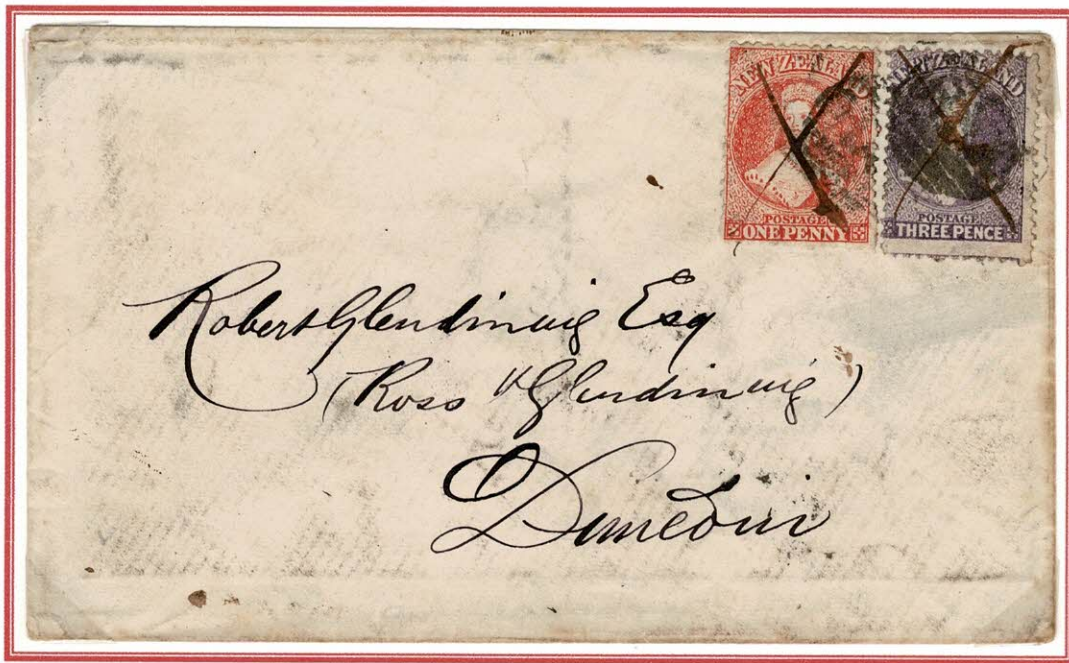 NEW ZEALAND
POSTAGE
ONE PENNY
NEW ZEALAND
POSTAGE
THREE PENCE
Robert Glendining Esq
(Ross & Glendining)
Dunedin